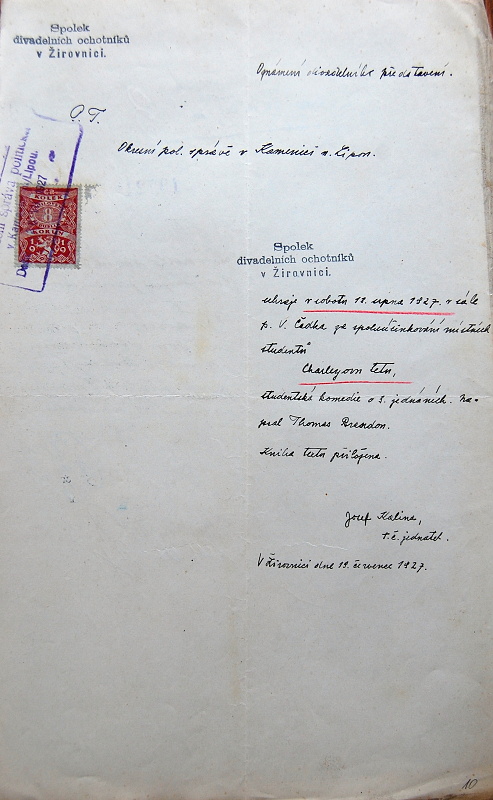 Spolek
divadelních ochotníků
v Žirovnici.
Oznámení divadelního představení.
P. T.
Okresní pol. správě v Kamenici n. Lipou.
správa politická
v Kamenici n/Lipou.
1927
KOLEK
8
KORUN
1919
Spolek
divadelních ochotníků
v Žirovnici.
sehraje v sobotu 13. srpna 1927. v sále
p. V. Čádka za spoluúčinkování místních
studentů
Charleyovu tetu,
studentská komedie o 3. jednáních. Na-
psal Thomas Brandon.
Kniha textu přiložena.
Josef Kalina,
t. č. jednatel.
V Žirovnici dne 19. července 1927.
10